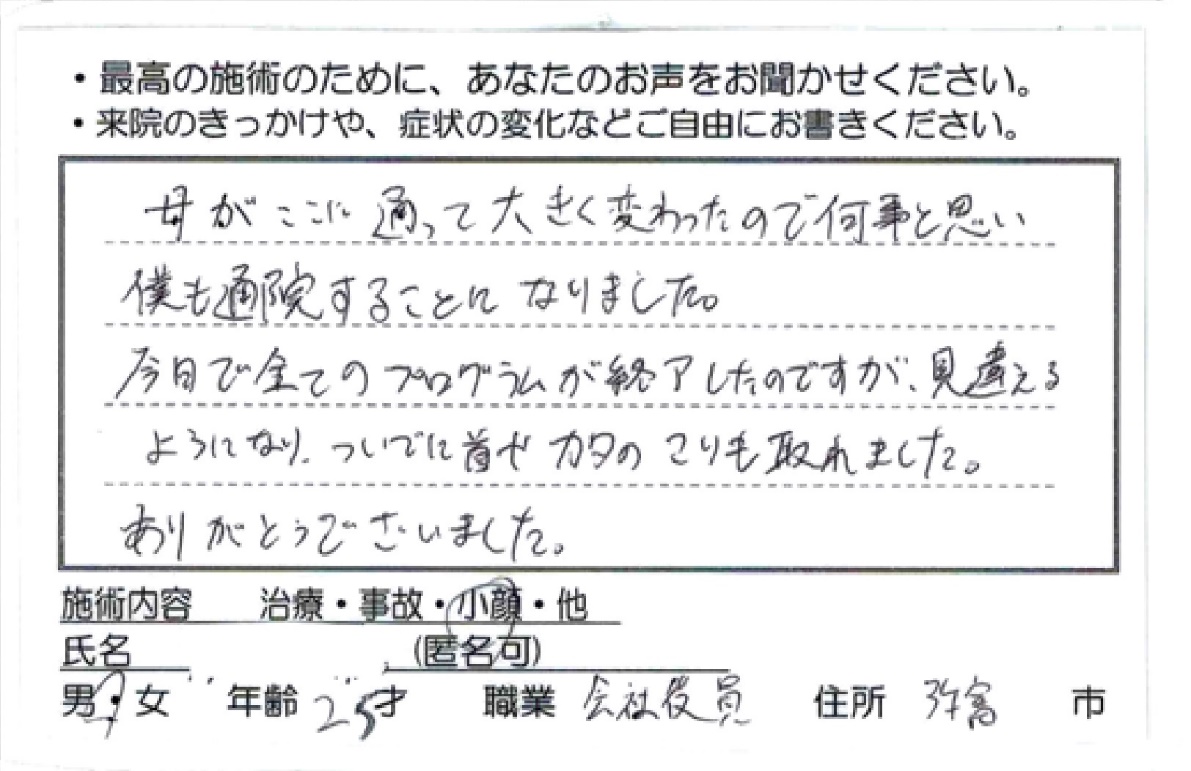 ・最高の施術のために、あなたのお声をお聞かせください。
・来院のきっかけや、症状の変化などご自由にお書きください。
母がここに通って大きく変わったので何事と思い
僕も通院することになりました。
今日で全てのプログラムが終了したのですが、見違える
ようになり、ついでに首やカタのこりも取れました。
ありがとうございました。
施術内容 治療・事故・小顔・他
氏名 (匿名可)
男・女 年齢 25才 職業 会社役員 住所 弥富 市